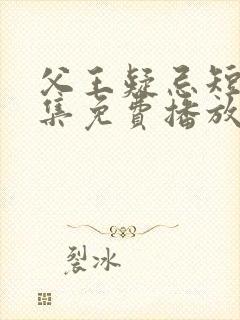 父王疑忌短
集免費播放
裂冰